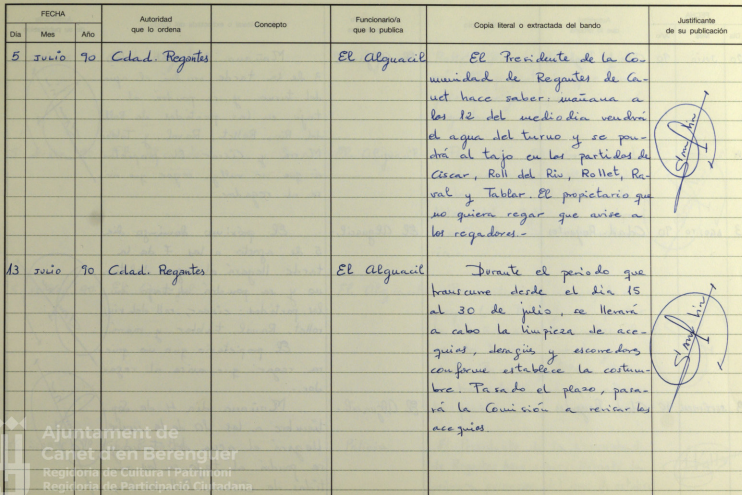 FECHA
Día Mes Año
Autoridad
que lo ordena
Concepto
Funcionario/a
que lo publica
Copia literal o extractada del bando
Justificante
de su publicación
5 JULIO 90 Cdad. Regantes El Alguacil
El Presidente de la Co-
munidad de Regantes de Ca-
net hace saber: mañana a
las 12 del mediodia vendrá
el agua del turno y se pon-
drá al tajo en las partidas de
Ciscar, Roll del Riu, Rollet, Ra-
val y Tablar. El propietario que
no quiera regar que avise a
los regadores.-
13 JULIO 90 Cdad. Regantes El Alguacil
Durante el periodo que
transcurre desde el dia 15
al 30 de julio, se llevará
a cabo la limpieza de ace-
quias, desagües y escorredores
conforme establece la costum-
bre. Pasado el plazo, pasa-
rá la Comisión a revisar las
acequias.
Ajuntament de
Canet d'en Berenguer
Regidoria de Cultura i Patrimoni
Regidoria de Participació Ciutadana